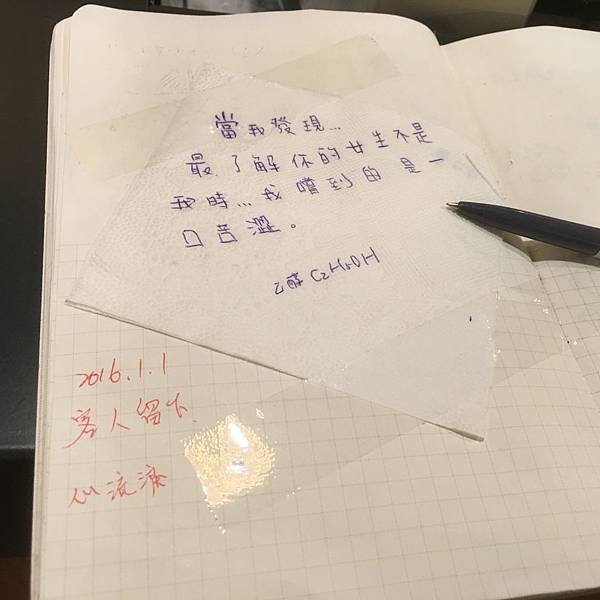 當我發現...
最了解你的女生不是
我時...我嚐到的是一
口苦澀。
乙醇 C2H5OH
2016.1.1
客人留下.